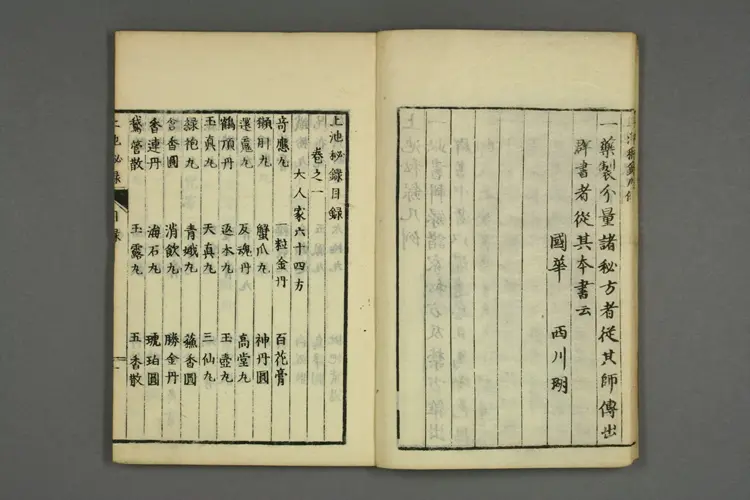 一藥製分量諸秘方者從其師傳出
群書者從其本書云
國華 西川瑚
上池秘錄目錄
卷之一
大人家六十四方
奇應丸 一粒金丹 百花膏
獺肝丸 蟹爪丸 神丹圓
還魂丸 反魂丹 高堂丸
鶴頂丹 丞水丸 玉壺丸
玉真丸 天真丸 三仙丸
綠袍丸 青娥丸 蘓香圓
含香圓 消飲丸 勝金丹
香連丹 海石丸 琥珀圓
鵝管散 玉露丸 五香散
上池秘錄 目錄